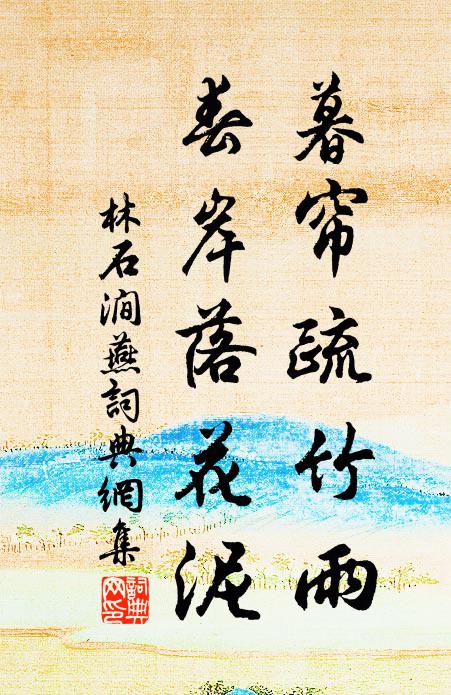 暮帘疏竹雨
春岸落花泥
林石澗燕詞典網集